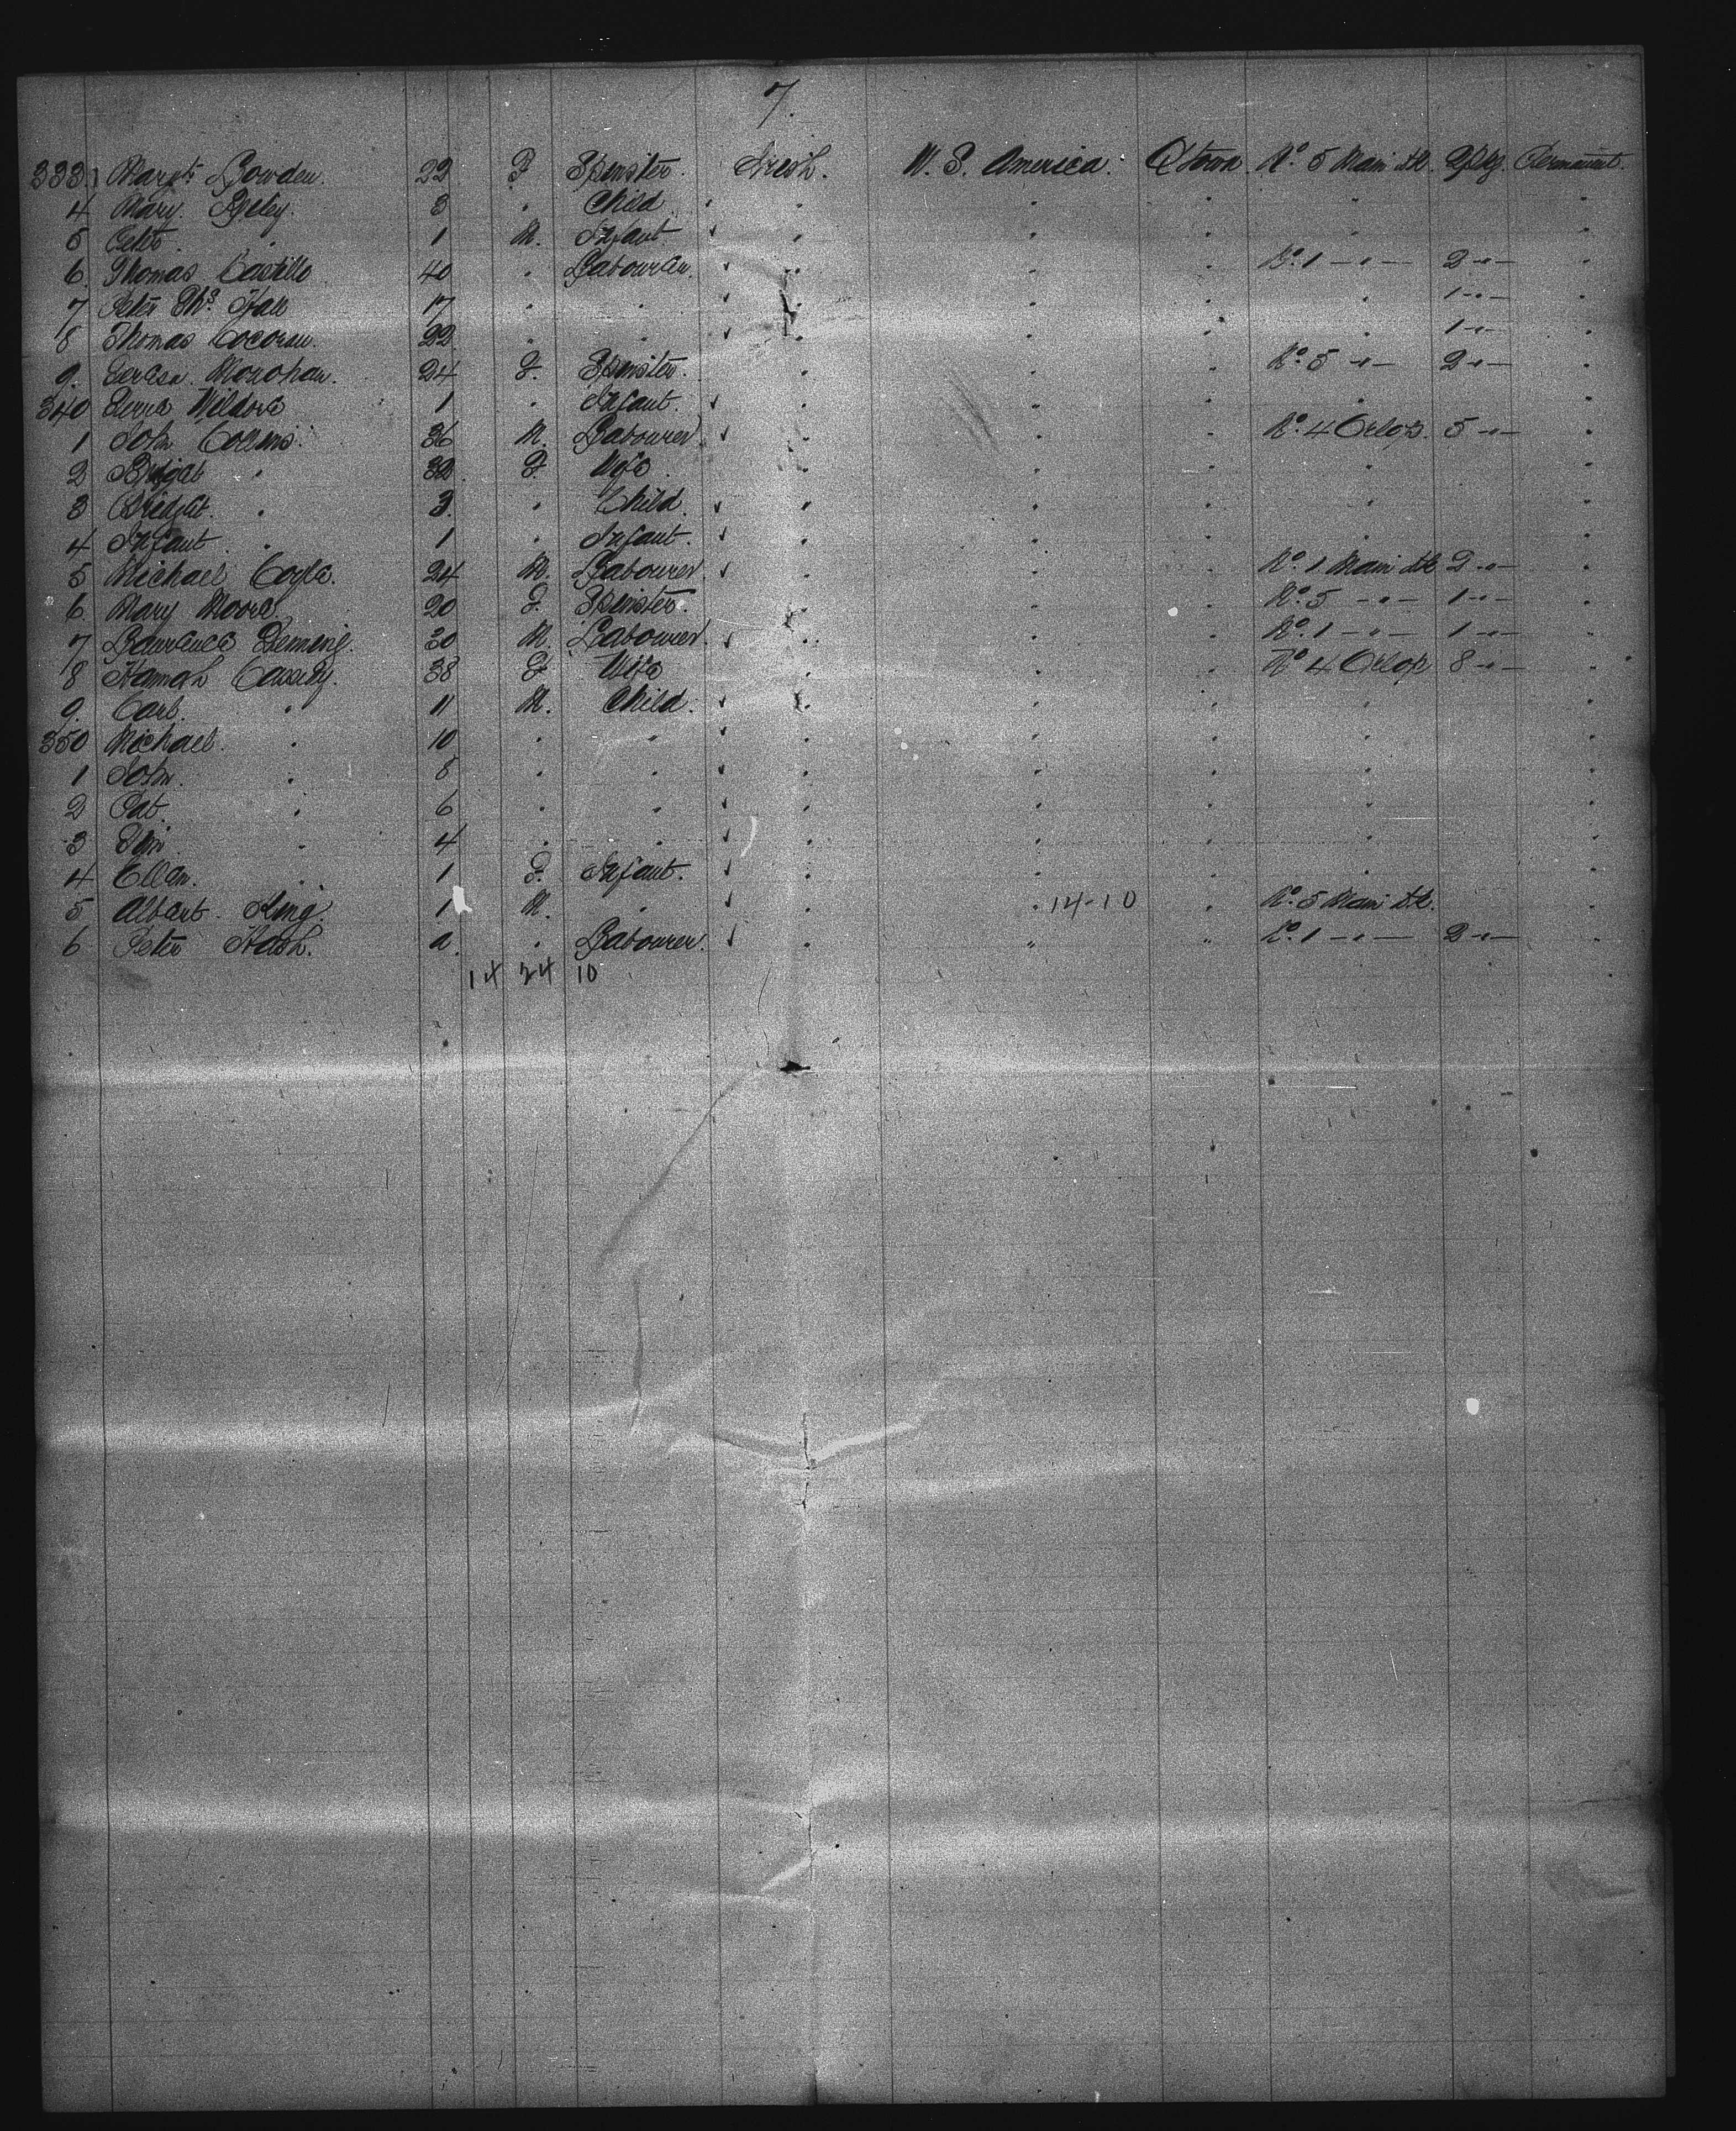 7.
333 Margt. Bowden. 22 F Spinster. Irish. U. S. America. Qtown No. 5 Main dk. Permanent.
4 Mary 3 " Child " " " " "
5 Peter " 1 M. Infant " " " "
6 Thomas Castillo 40 " Labourer " " " No. 1 - " - 2 - " - "
7 Peter Ths. Hall 17 " " " " " " 1 - " - "
8 Thomas Cocoran. 22 " " " " " 1 - " - "
9. Teresa Monohan. 24 F. Spinster. " " " No. 5 - " - 2 - " - "
340 Wildore 1 " Infant. " " " " "
1 John Collins. 36 M. Labourer " " " No. 4 Orlop. 5 - " - "
2 Bridgat " 32 F. Wife. " " " " "
3 Bridgat. " 3. " Child. " " " " "
4 Infant " 1 " Infant. " " " " "
5 Michael Coyle. 24 M. Labourer. " " " No. 1 Main dk 2 - " - "
6 Mary Moore 20 F. Spinster. " " " No. 5 - " - 1 - " - "
7 Lawrence Deming. 30 M. Labourer. " " " No. 1 - " - 1 - " - "
8 Hannah Cassidy. 38 F Wife " " " No. 4 Orlop 8 - " - "
9. Carl. " 11 M. Child. " " " " "
350 Michael. " 10 " " " " " " "
1 John. " 8 " " " " " " "
2 Pat. " 6 " " " " " " "
3 Tim " 4 " " " " " " "
4 Ellen. " 1 F. Infant. " " " " "
5 Albert King. 1 M. " " " 14-10 " No. 5 Main dk. "
6 Peter Nash. a. " Labourer. " " " No. 1 - " - 2 - " - "
14 24 10